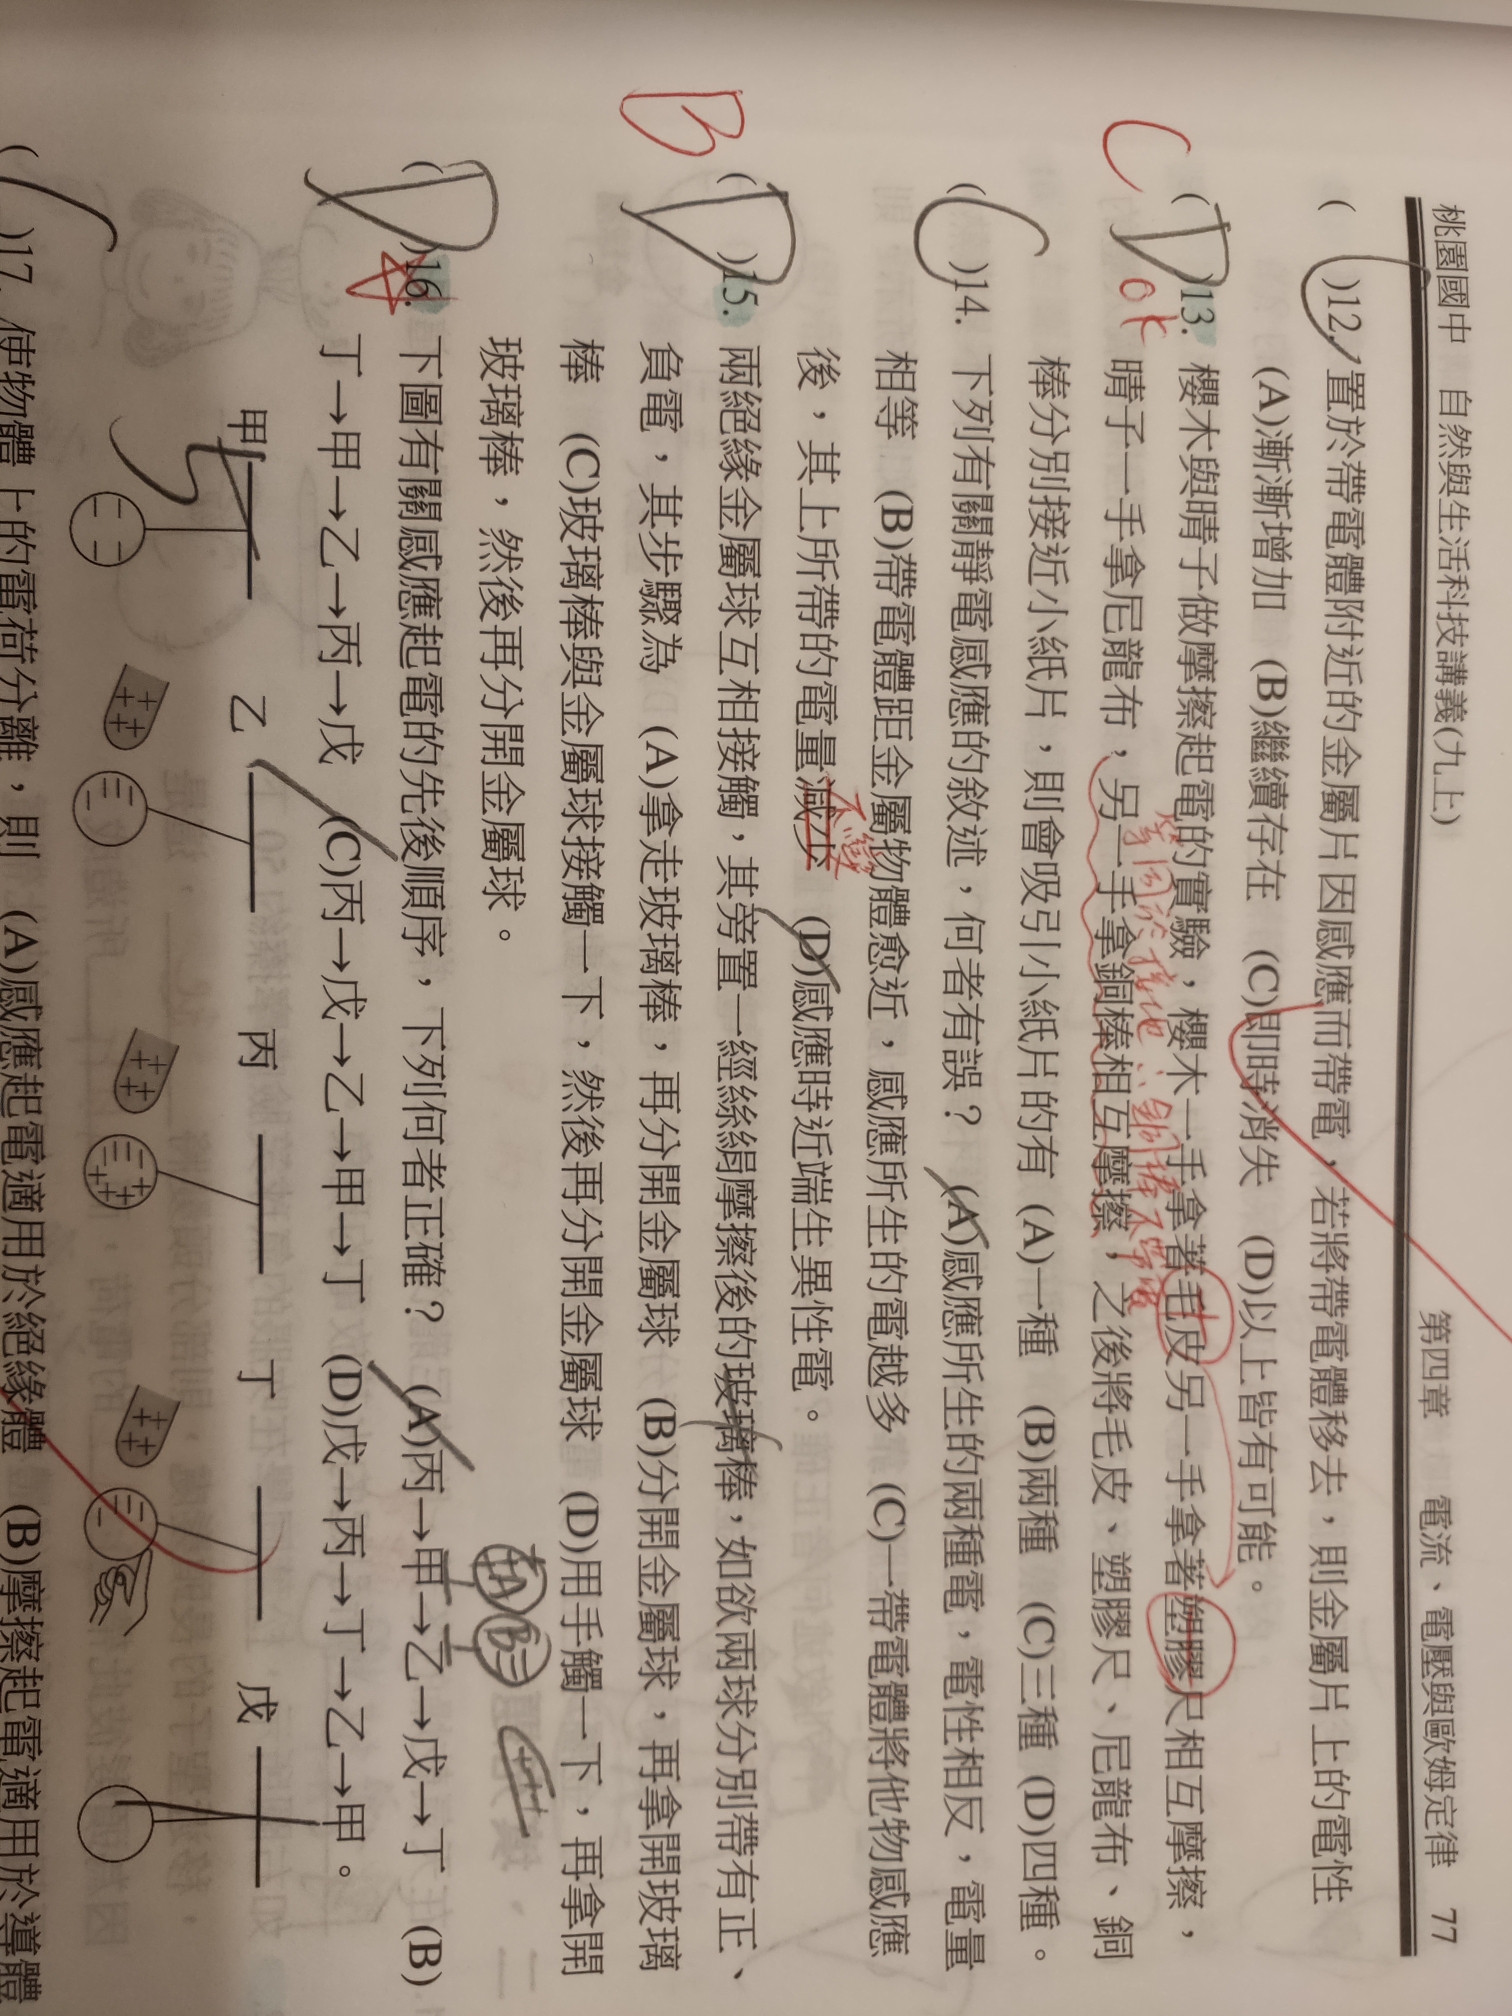 桃園國中　自然與生活科技講義(九上)　第四章　電流、電壓與歐姆定律　77
( C )12. 置於帶電體附近的金屬片因感應而帶電，若將帶電體移去，則金屬片上的電性
(A)漸漸增加　(B)繼續存在　(C)即時消失　(D)以上皆有可能。
C ( D )13. 櫻木與晴子做摩擦起電的實驗，櫻木一手拿著毛皮另一手拿著塑膠尺相互摩擦，
ok 晴子一手拿尼龍布，另一手拿銅棒相互摩擦，之後將毛皮、塑膠尺、尼龍布、銅
棒分別接近小紙片，則會吸引小紙片的有 (A)一種　(B)兩種　(C)三種 (D)四種。
( C )14. 下列有關靜電感應的敘述，何者有誤？　(A)感應所生的兩種電，電性相反，電量
相等　(B)帶電體距金屬物體愈近，感應所生的電越多　(C)一帶電體將他物感應
不變
後，其上所帶的電量減少　(D)感應時近端生異性電。
B ( D )15. 兩絕緣金屬球互相接觸，其旁置一經絲絹摩擦後的玻璃棒，如欲兩球分別帶有正、
負電，其步驟為　(A)拿走玻璃棒，再分開金屬球　(B)分開金屬球，再拿開玻璃
棒　(C)玻璃棒與金屬球接觸一下，然後再分開金屬球　(D)用手觸一下，再拿開
玻璃棒，然後再分開金屬球。
( D )16. 下圖有關感應起電的先後順序，下列何者正確？　(A)丙→甲→乙→戊→丁　(B)
丁→甲→乙→丙→戊　(C)丙→戊→乙→甲→丁　(D)戊→丙→丁→乙→甲。
甲　乙　丙　丁　戊
( C )17. 使物體上的電荷分離，則　(A)感應起電適用於絕緣體　(B)摩擦起電適用於導體